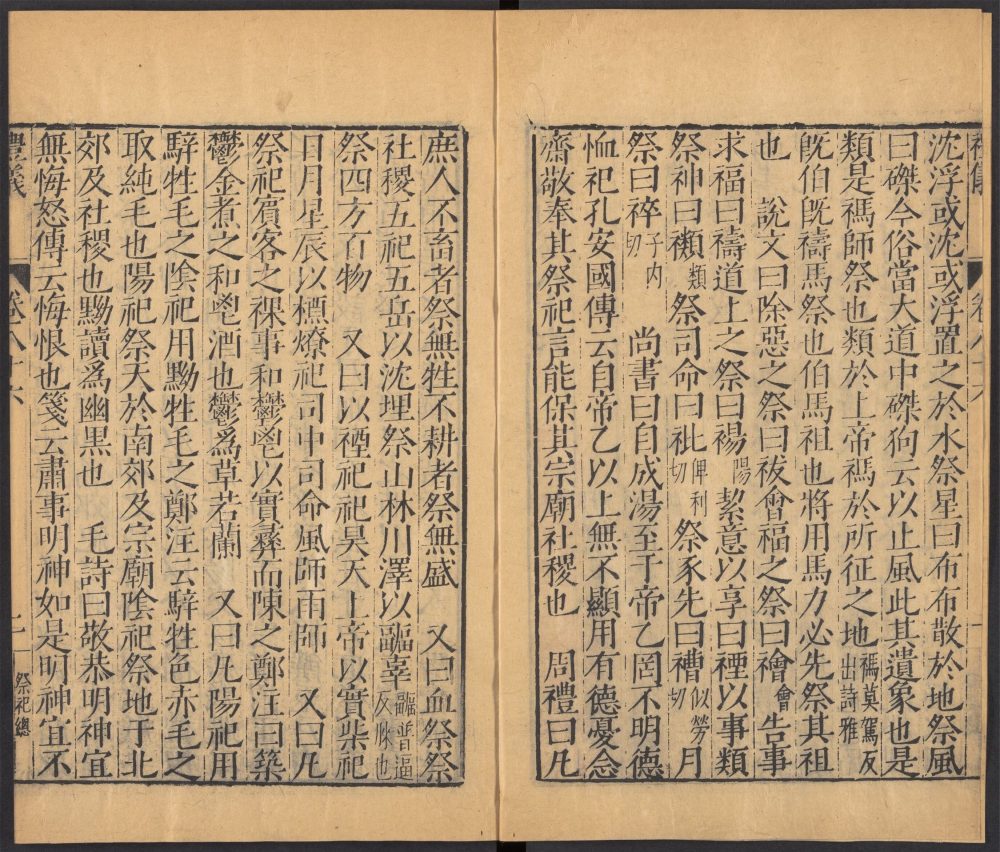 禮儀 卷八十六 一
沈浮或沈或浮置之於水祭星曰布布散於地祭風
曰磔今俗當大道中磔狗云以止風此其遺象也是
類是禡師祭也類於上帝禡於所征之地禡莫駕反出詩雅
旣伯旣禱馬祭也伯馬祖也將用馬力必先祭其祖
也 說文曰除惡之祭曰祓會福之祭曰禬會告事
求福曰禱道上之祭曰禓陽絜意以享曰禋以事類
祭神曰禷類祭司命曰祉俾利切祭豕先曰禮似勞切月
祭曰祽子內切 尚書曰自成湯至于帝乙罔不明德
恤祀孔安國傳云自帝乙以上無不顯用有德憂念
齋敬奉其祭祀言能保其宗廟社稷也 周禮曰凡
庶人不畜者祭無牲不耕者祭無盛 又曰血祭祭
社稷五祀五岳以沈埋祭山林川澤以疈辜疈普逼反 也
祭四方百物 又曰以禋祀祀昊天上帝以實柴祀
日月星辰以槱燎祀司中司命風師雨師 又曰凡
祭祀賓客之祼事和鬱鬯以實彝而陳之鄭注曰築
鬱金煮之和鬯酒也鬱爲草若蘭 又曰凡陽祀用
騂牲毛之陰祀用黝牲毛之鄭注云騂牲色赤毛之
取純毛也陽祀祭天於南郊及宗廟陰祀祭地于北
郊及社稷也黝讀爲幽黑也 毛詩曰敬恭明神宜
無悔怒傳云悔恨也箋云肅事明神如是明神宜不
禮儀 卷八十六 二 祭祀總